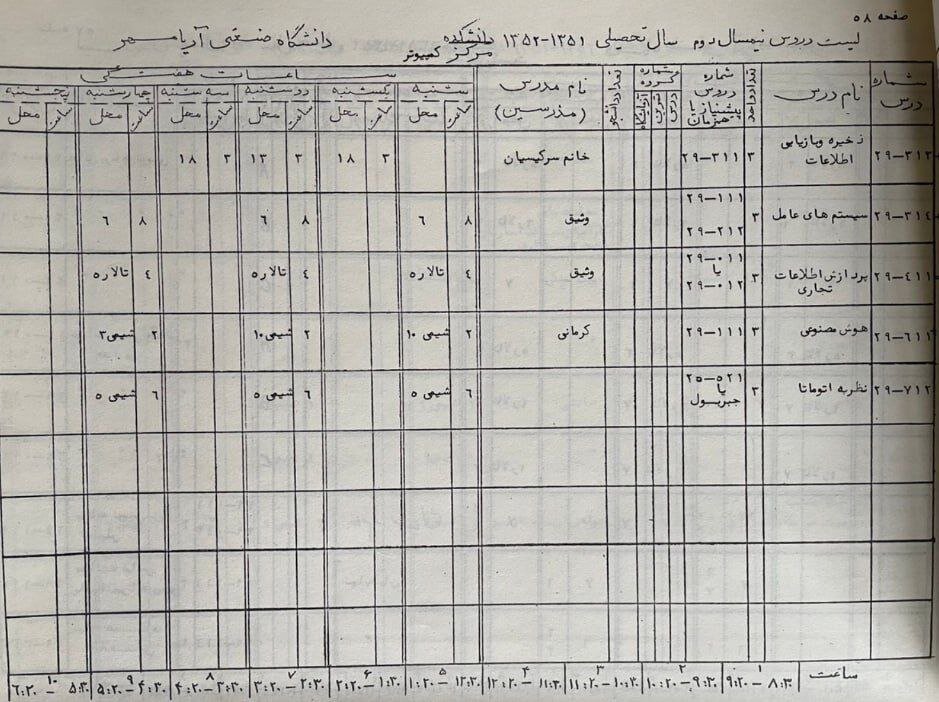 صفحه ۵۸
لیست دروس نیمسال دوم سال تحصیلی ۱۳۵۱-۱۳۵۲ دانشکده مرکز کمپیوتر دانشگاه صنعتی آریامهر
شماره درس نام درس تعداد واحد شماره دروس پیشنیاز یا همزمان شماره گروه درس تمرین آزمایشگاه تعداد دانشجو نام مدرس (مدرسین) ساعات هفتگی
شنبه یکشنبه دوشنبه سه شنبه چهارشنبه پنجشنبه
ساعت محل ساعت محل ساعت محل ساعت محل ساعت محل ساعت محل
۲۹-۳۱۳ ذخیره وبازیابی اطلاعات ۳ ۲۹-۳۱۱ خانم سرکیسیان ۳ ۱۸ ۳ ۱۳ ۳ ۱۸
۲۹-۳۱۴ سیستم های عامل ۳ ۲۹-۱۱۱ ۲۹-۲۱۲ وثیق ۸ ۶ ۸ ۶ ۸ ۶
۲۹-۴۱۱ پردازش اطلاعات تجاری ۳ ۲۹-۰۱۱ یا ۲۹-۰۱۲ وثیق ۴ تالار۵ ۴ تالار۵ ۴ تالار۵
۲۹-۶۱۱ هوش مصنوعی ۳ ۲۹-۱۱۱ کرمانی ۲ شیمی ۱۰ ۲ شیمی۱۰ ۲ شیمی۳
۲۹-۷۱۲ نظریه اتوماتا ۳ ۲۵-۵۲۱ یا جبربول ۶ شیمی ۵ ۶ شیمی ۵ ۶ شیمی ۵
ساعت ۱ ۸:۳۰-۹:۲۰ ۲ ۹:۳۰-۱۰:۲۰ ۳ ۱۰:۳۰-۱۱:۲۰ ۴ ۱۱:۳۰-۱۲:۲۰ ۵ ۱۲:۳۰-۱:۲۰ ۶ ۱:۳۰-۲:۲۰ ۷ ۲:۳۰-۳:۲۰ ۸ ۳:۳۰-۴:۲۰ ۹ ۴:۳۰-۵:۲۰ ۱۰ ۵:۳۰-۶:۲۰